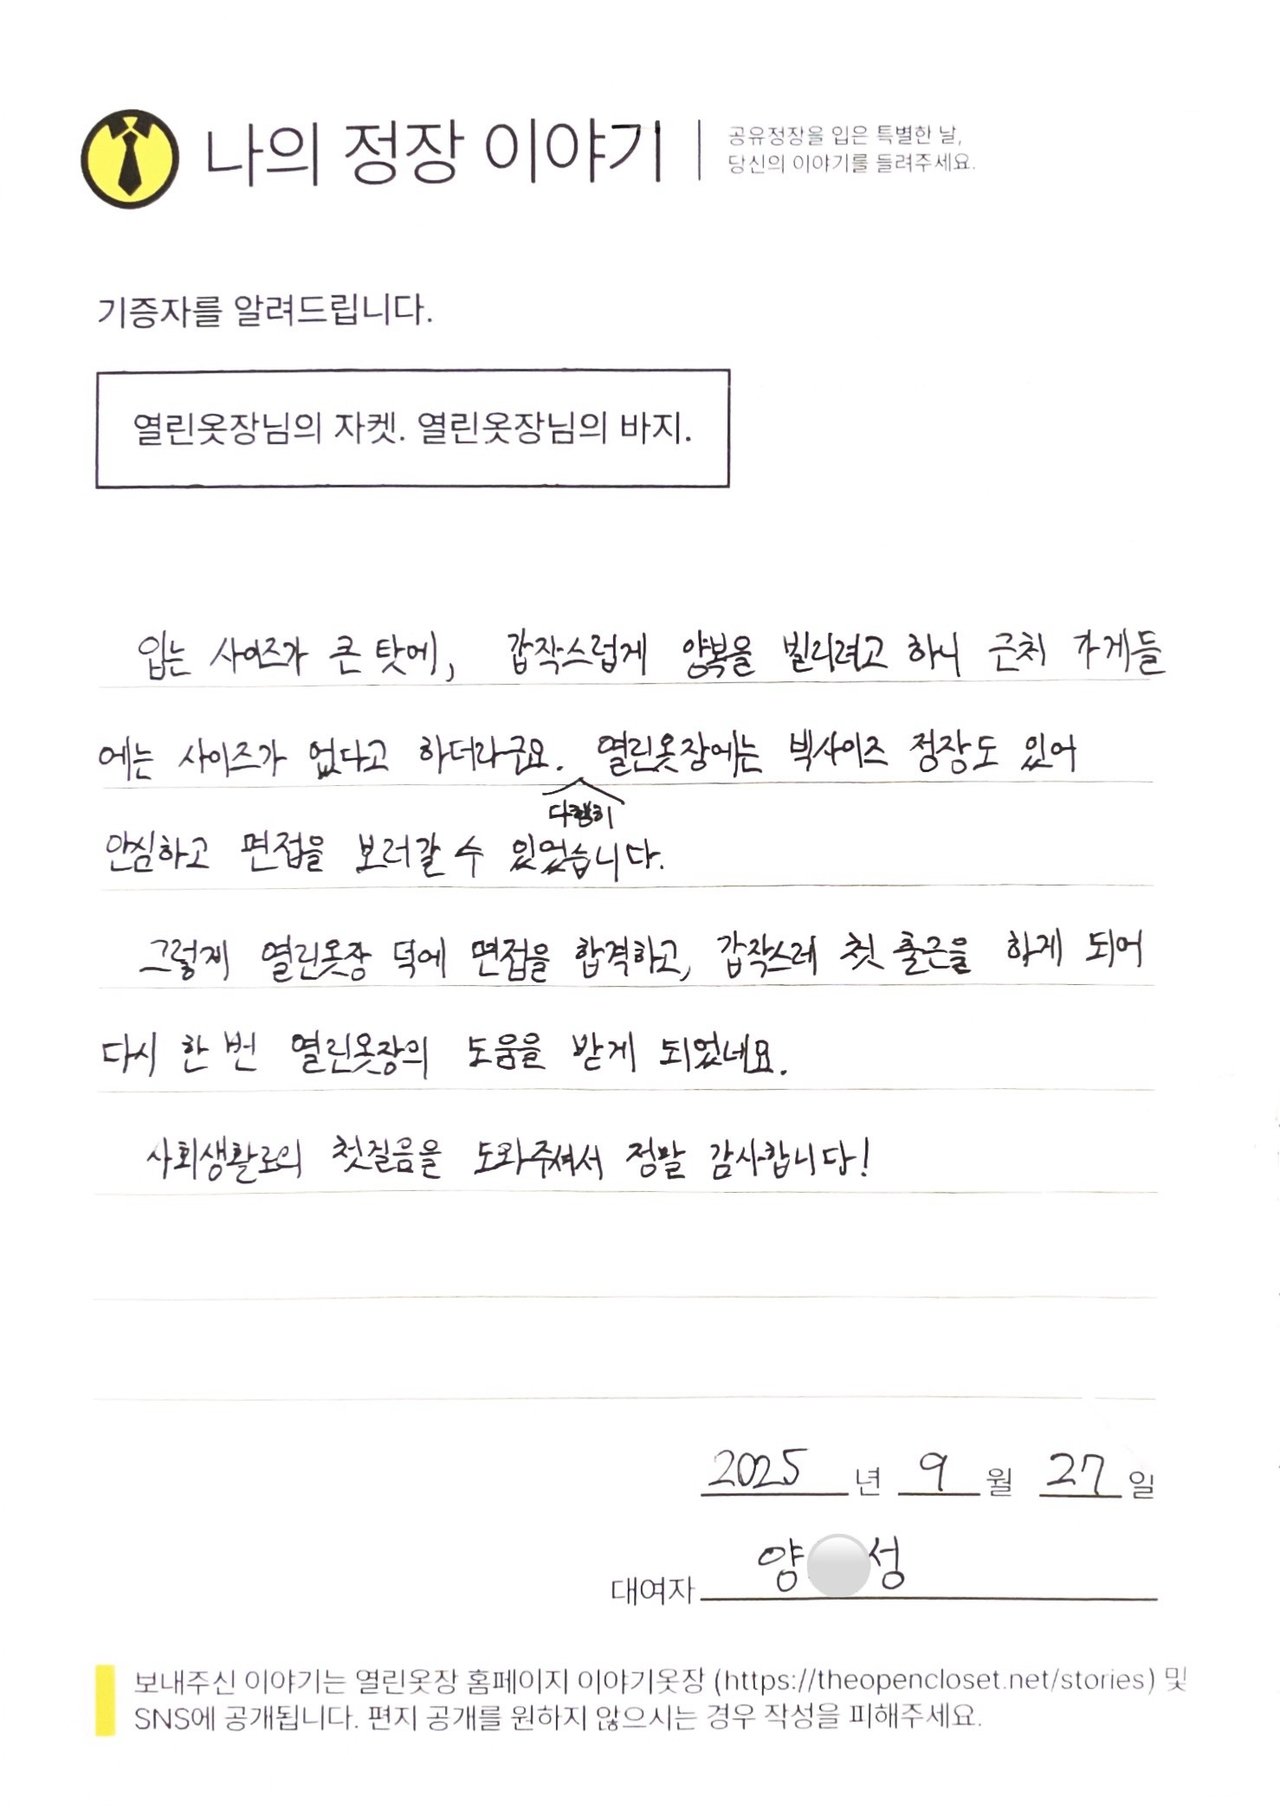 나의 정장 이야기
공유정장을 입은 특별한 날,
당신의 이야기를 들려주세요.
기증자를 알려드립니다.
열린옷장님의 자켓. 열린옷장님의 바지.
입는 사이즈가 큰 탓에, 갑작스럽게 양복을 빌리려고 하니 근처 가게들
에는 사이즈가 없다고 하더라구요. 열린옷장에는 빅사이즈 정장도 있어
다행히
안심하고 면접을 보러갈 수 있었습니다.
그렇게 열린옷장 덕에 면접을 합격하고, 갑작스레 첫 출근을 하게 되어
다시 한 번 열린옷장의 도움을 받게 되었네요.
사회생활로의 첫걸음을 도와주셔서 정말 감사합니다!
2025 년 9 월 27 일
대여자 양 성
보내주신 이야기는 열린옷장 홈페이지 이야기옷장 (https://theopencloset.net/stories) 및
SNS에 공개됩니다. 편지 공개를 원하지 않으시는 경우 작성을 피해주세요.